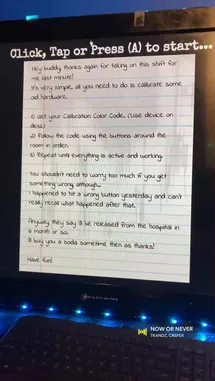 Click, Tap or Press (A) to start...
Hey buddy thanks again for taking on this shift for
me last minute!
It's very simple, all you need to do is calibrate some
old hardware.
1) Get your Calibration Color Code. (Use device on
desk)
2) Follow the code using the buttons around the
room in order.
3) Repeat until everything is active and working.
You shouldn't need to worry too much if you get
something wrong although...
I happened to hit a wrong button yesterday and can't
really recall what happened after that.
Anyway they say I'll be released from the hospital in
a month or so.
I'll buy you a soda sometime then as thanks!
Have fun!
NOW OR NEVER